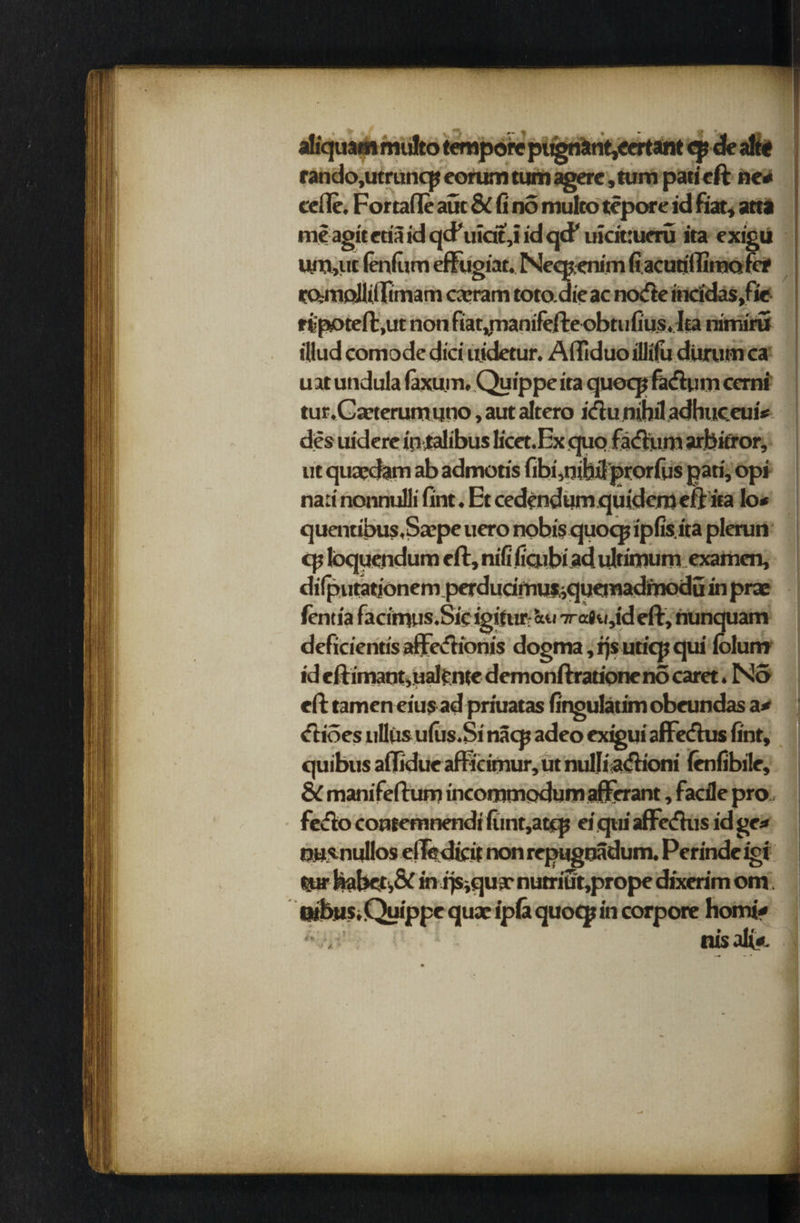 aliquam multo tempore pugnant,certant cꝫ de alte
rando,utruncꝫ eorum tum agere,tum pati eſt ne⸗
ceſſe. Fortaſſe aūt & ſi nō multo tēpore id fiat, attā
mē agit etiā id qd' uicit,ī id qd' uicit:uerū ita exigu
um,ut ſenſum effugiat. Necꝫ.enim ſi acutiſſimo fer
ro,molliſſimam cæram toto.die ac nocte incidas,fie
ri poteſt,ut non fiat,manifeſte obtuſius. Ita nimirū
illud comode dici uidetur. Aſſiduo illiſu durum ca
uat undula ſaxum. Quippe ita quocꝫ factum cerni
tur.Cæterum uno, aut altero ictu nihil adhuc eui⸗
dēs uidere in talibus licet.Ex quo factum arbitror,
ut quædam ab admotis ſibi,nihil prorſus pati, opi
nati nonnulli ſint. Et cedendum quidem eſt ita lo⸗
quentibus.Sæpe uero nobis quocꝫ ipſis ita plerun
cꝫ loquendum eſt, niſi ſicubi ad ultimum examen,
diſputationem perducimus,quemadmodū in præ
ſentia facimus.Sic igitur ,id eſt, nunquam
deficientis affectionis dogma, ijs uticꝫ qui ſolum
id eſtimant,ualente demonſtratione nō caret. Nō
eſt tamen eius ad priuatas ſingulatim obeundas a⸗
ctiōes ullus uſus.Si nācꝫ adeo exigui affectus ſint,
quibus aſſidue afficimur, ut nulli actioni ſenſibile,
& manifeſtum incommodum afferant, facile pro
fecto contemnendi ſunt,atcꝫ ei qui affectus id ge⸗
nus nullos eſſe dicit non repugnādum. Perinde igi
tur habet,& in ijs,quæ nutriūt,prope dixerim om
nibus. Quippe quæ ipſa quocꝫ in corpore homi⸗
nis ali⸗